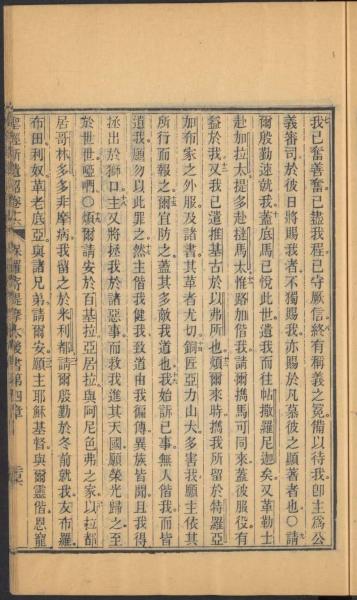 我已奮善奮已盡我程已守厥信終有稱義之冕備以待我卽主爲公
義審司於彼日將賜我者不獨賜我亦賜於凡慕彼之顯著者也〇請
爾殷勤速就我蓋底馬已悅此世遺我而往帖撒羅尼迦矣又革勒士
赴加拉太提多赴撻馬太惟路加偕我請爾攜馬可同來蓋彼服役有
益於我又我已遣推基古於以弗所也煩爾來時攜我所留於特羅亞
加布家之外服及諸書其革者尤切銅匠亞力山大多害我願主依其
所行而報之爾宜防之蓋其多敵我道也我始訴已事無人偕我而皆
遺我願勿以此罪之然主偕我健我致道由我徧傳異族皆聞且我得
拯出於獅口主又將拯我於諸惡事而救我進其天國願榮光歸之至
於世世啞們〇煩爾請安於百基拉亞居拉與阿尼色弗之家以拉都
居哥林多多非摩病我留之於米利都請爾殷勤於冬前就我友布羅
布田利奴革老底亞與諸兄弟請爾安願主耶穌基督與爾靈偕恩寵
聖經新遺詔卷十六 保羅寄提摩太後書第四章